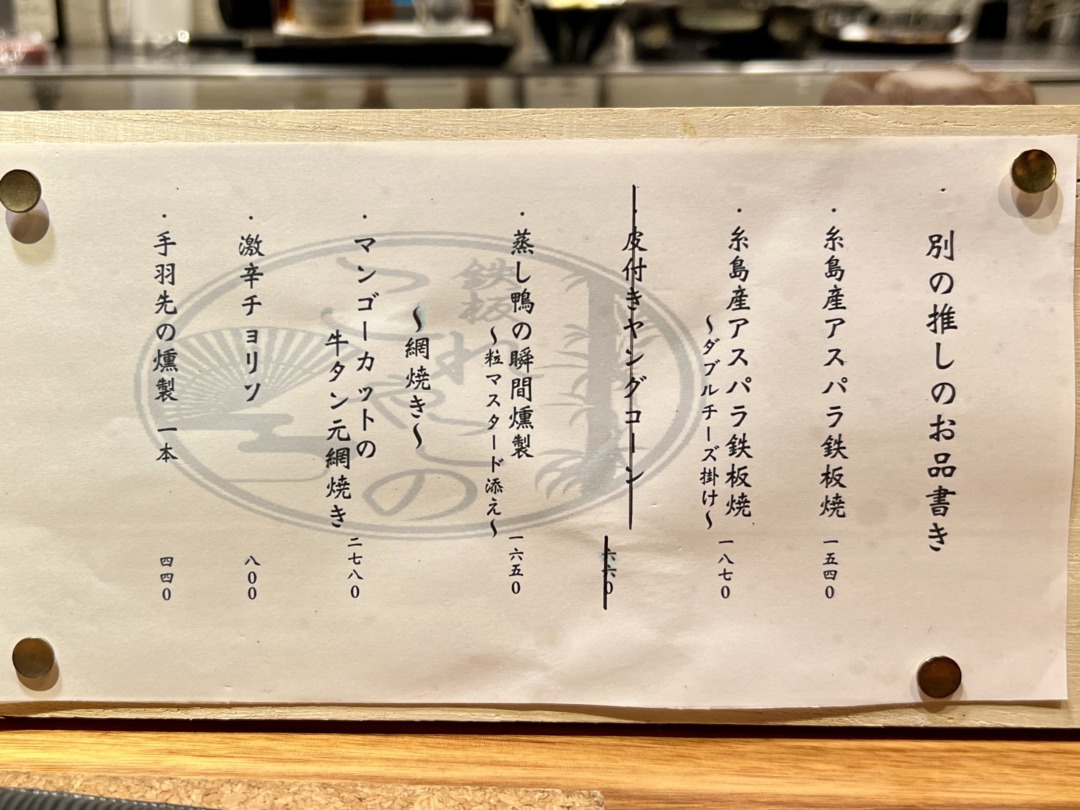 別の推しのお品書き
・糸島産アスパラ鉄板焼 一五四0
・糸島産アスパラ鉄板焼
〜ダブルチーズ掛け〜 一八七0
・皮付きヤングコーン 六六0
・蒸し鴨の瞬間燻製
〜粒マスタード添え〜 一六五0
〜網焼き〜
・マンゴーカットの
牛タン元網焼き 二七八0
・激辛チョリソ 八00
・手羽先の燻製 一本 四四0
鉄板